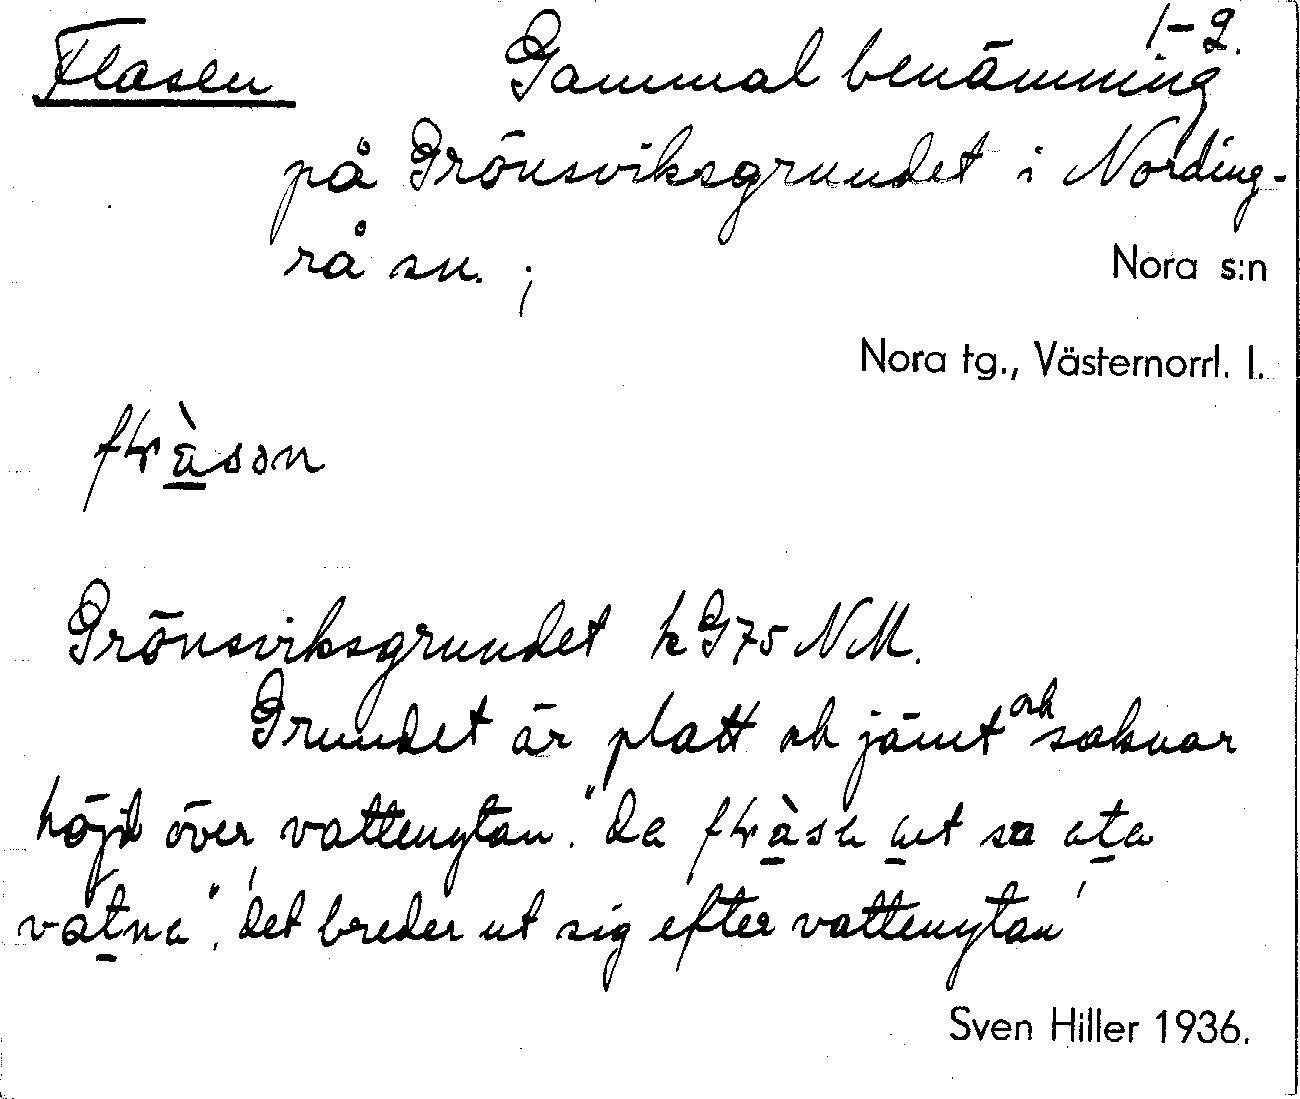 1-2.
Flasen Gammal benämning
på Grönsviksgrundet i Nording-
rå sn. ;
Nora s:n
Nora tg., Västernorrl. l.
Grönsviksgrundet k G75 NM.
Grundet är platt ok jämt ok saknar
höjd över vattenytan. "da ut sa ata
vatna", 'det breder ut sig efter vattenytan'
Sven Hiller 1936.